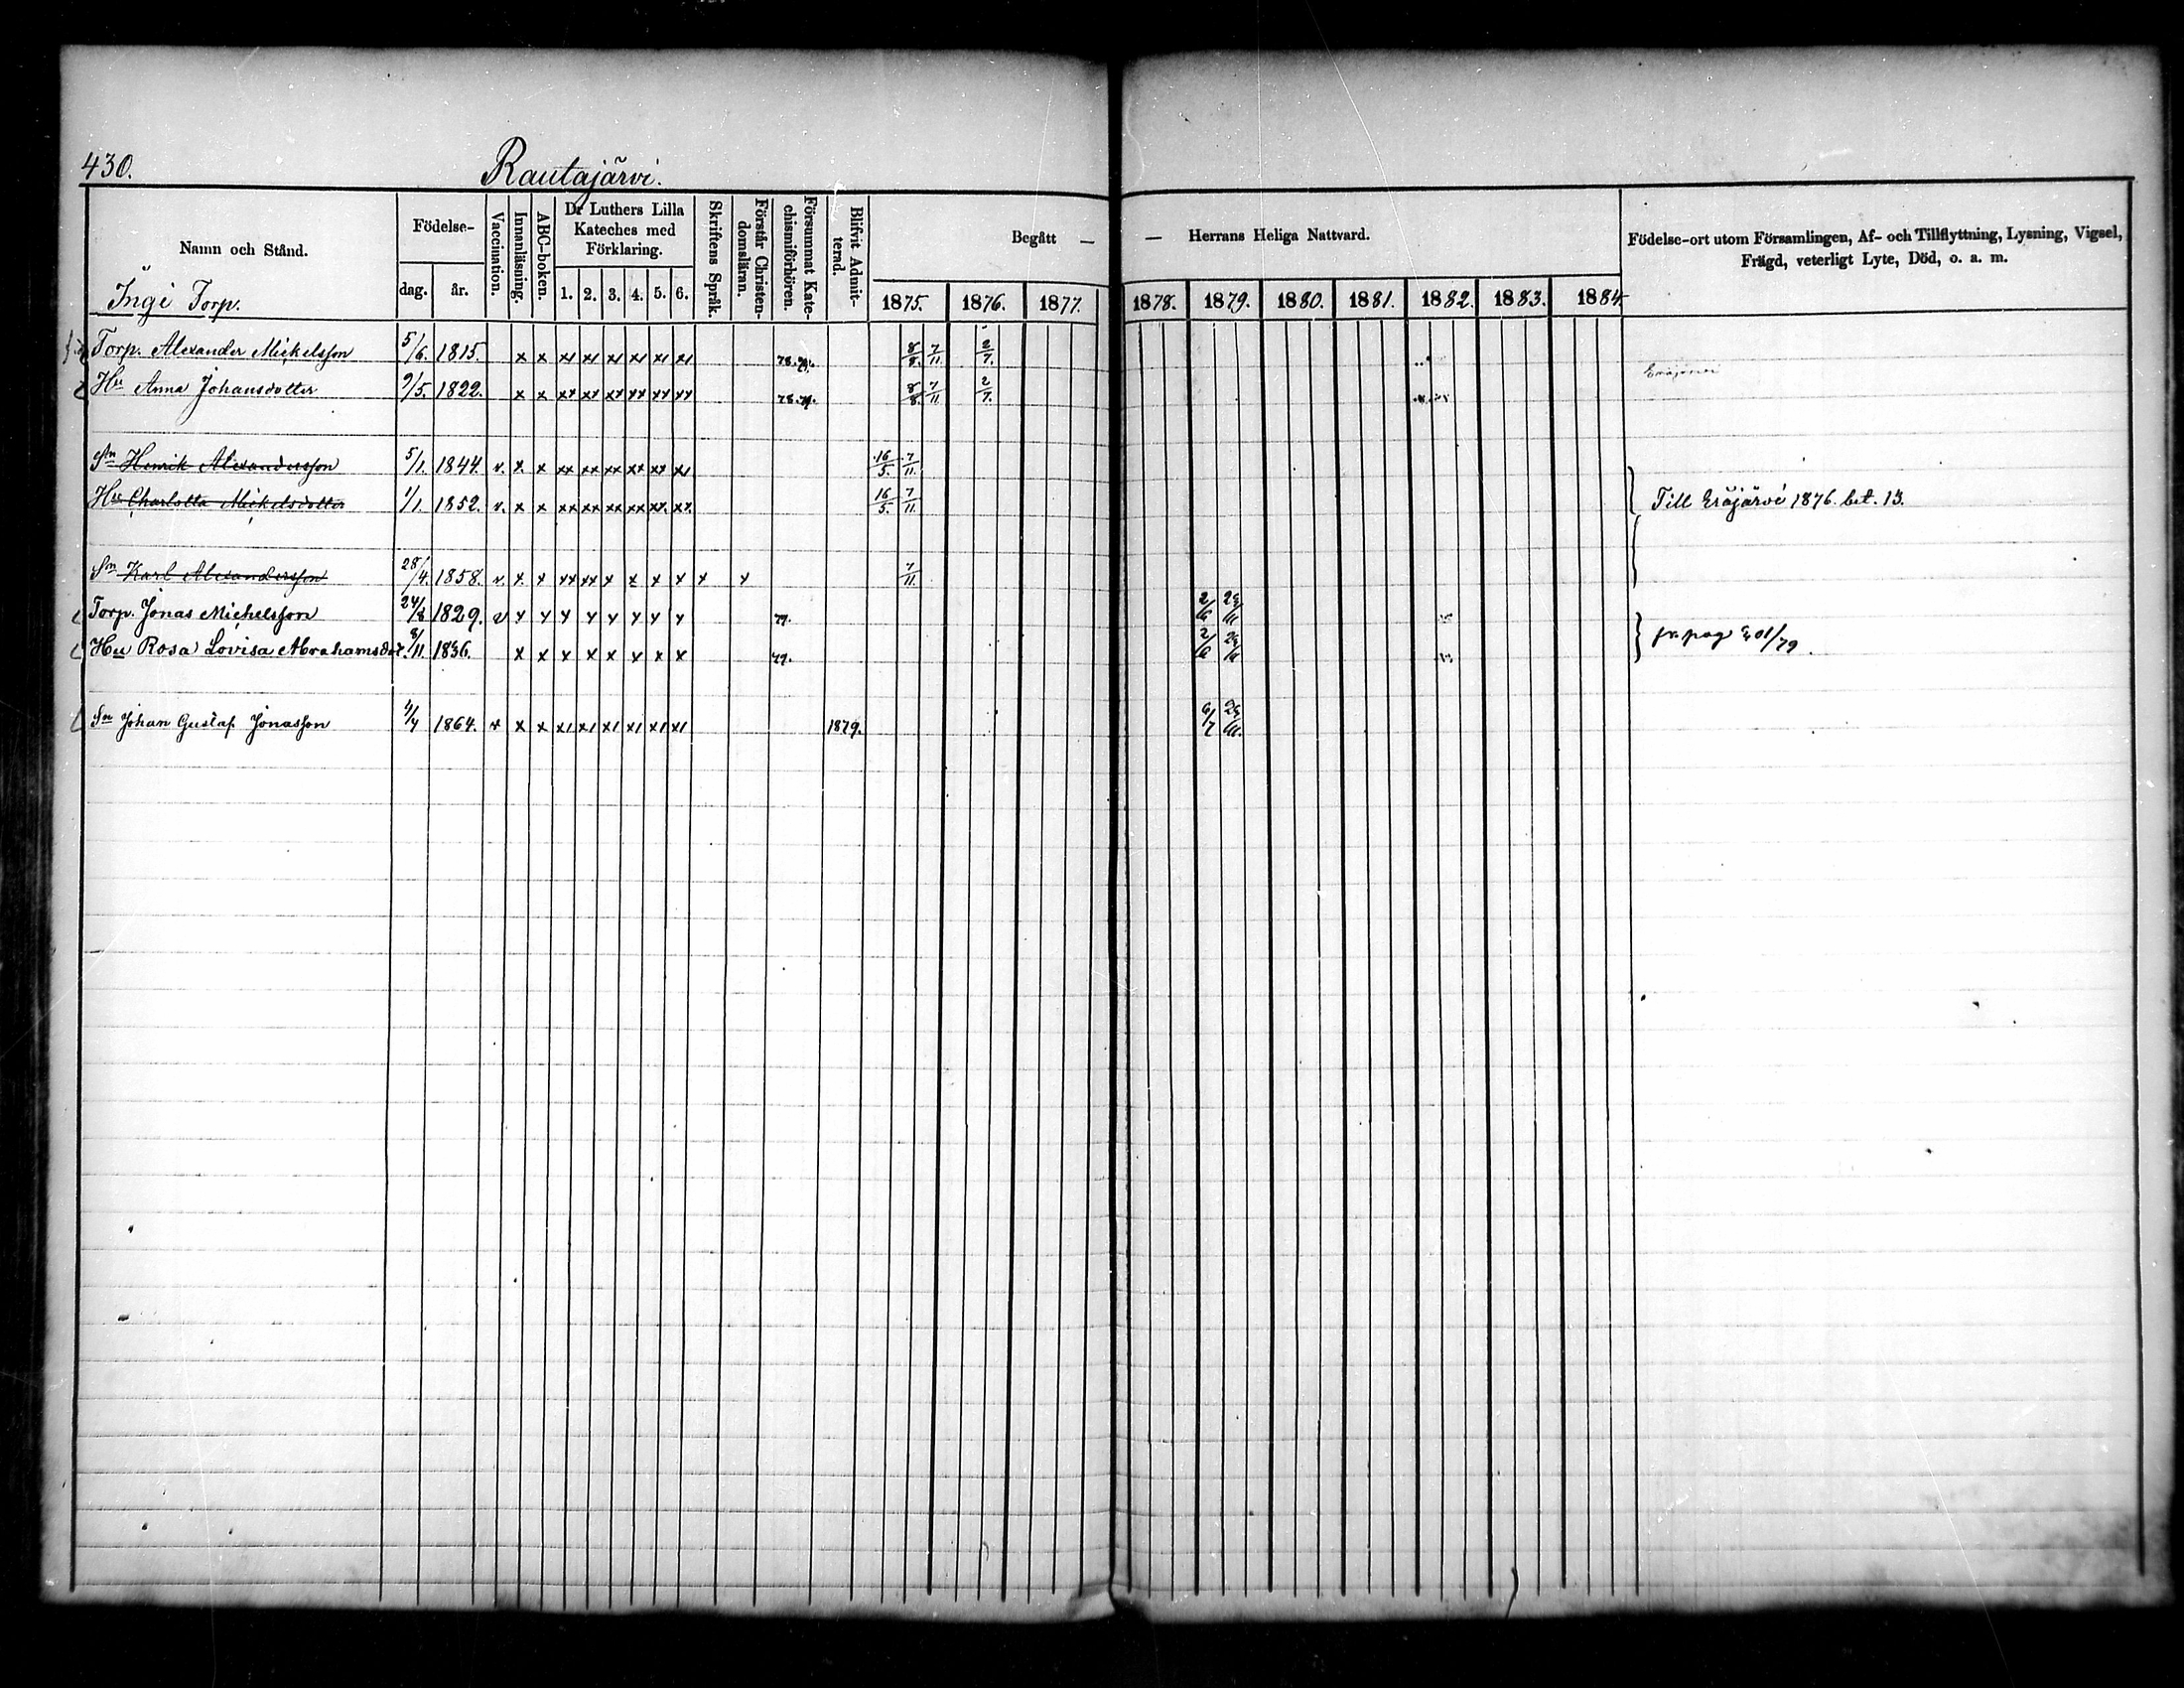 430.
Rautajärvi.
Namn och Stånd.
Födelse-
dag. år.
Vaccination.
Innanläsning.
ABC-boken.
Dr Luthers Lilla Kateches med Förklaring.
1. 2. 3. 4. 5. 6.
Skriftens Språk.
Förstår Christen-domsläran.
Försummat Kate-chismiförhören.
Blifvit Admit-terad.
Begått — — Herrans Heliga Nattvard.
1875. 1876. 1877. 1878. 1879. 1880. 1881. 1882. 1883. 1884
Födelse-ort utom Församlingen, Af- och Tillflyttning, Lysning, Vigsel, Frägd, veterligt Lyte, Död, o. a. m.
Ingi Torp.
Torp. Alexander Mickelsson 5/6. 1815. x x x x x x x x 78. 79. 8/8. 7/11. 2/7.
Hu Anna Johansdotter 9/5. 1822. x x xx xx xx xx xx xx 78. 79. 8/8. 7/11 2/7.
Sn Henrik Alexandersson 5/1. 1844. v. x. x xx xx xx xx xx x 16/5. 7/11.
Hu Charlotta Mickelsdotter 1/1. 1852. v. x x xx xx xx xx xx. xx. 16/5. 7/11. Till Eräjärvi 1876. bet. 13.
Sn Karl Alexandersson 28/4. 1858. v. x. x xx xx x x x x x x 7/11.
Torp. Jonas Michelsson 24/8 1829. v x x x x x x x x 79.
Hu Rosa Lovisa Abrahamsdot. 8/11. 1836. x x x x x x x x 79. fr. pag 401/79.
Sn Johan Gustaf Jonasson 4/4 1864. x x x x x x x x x 1879. 6/7